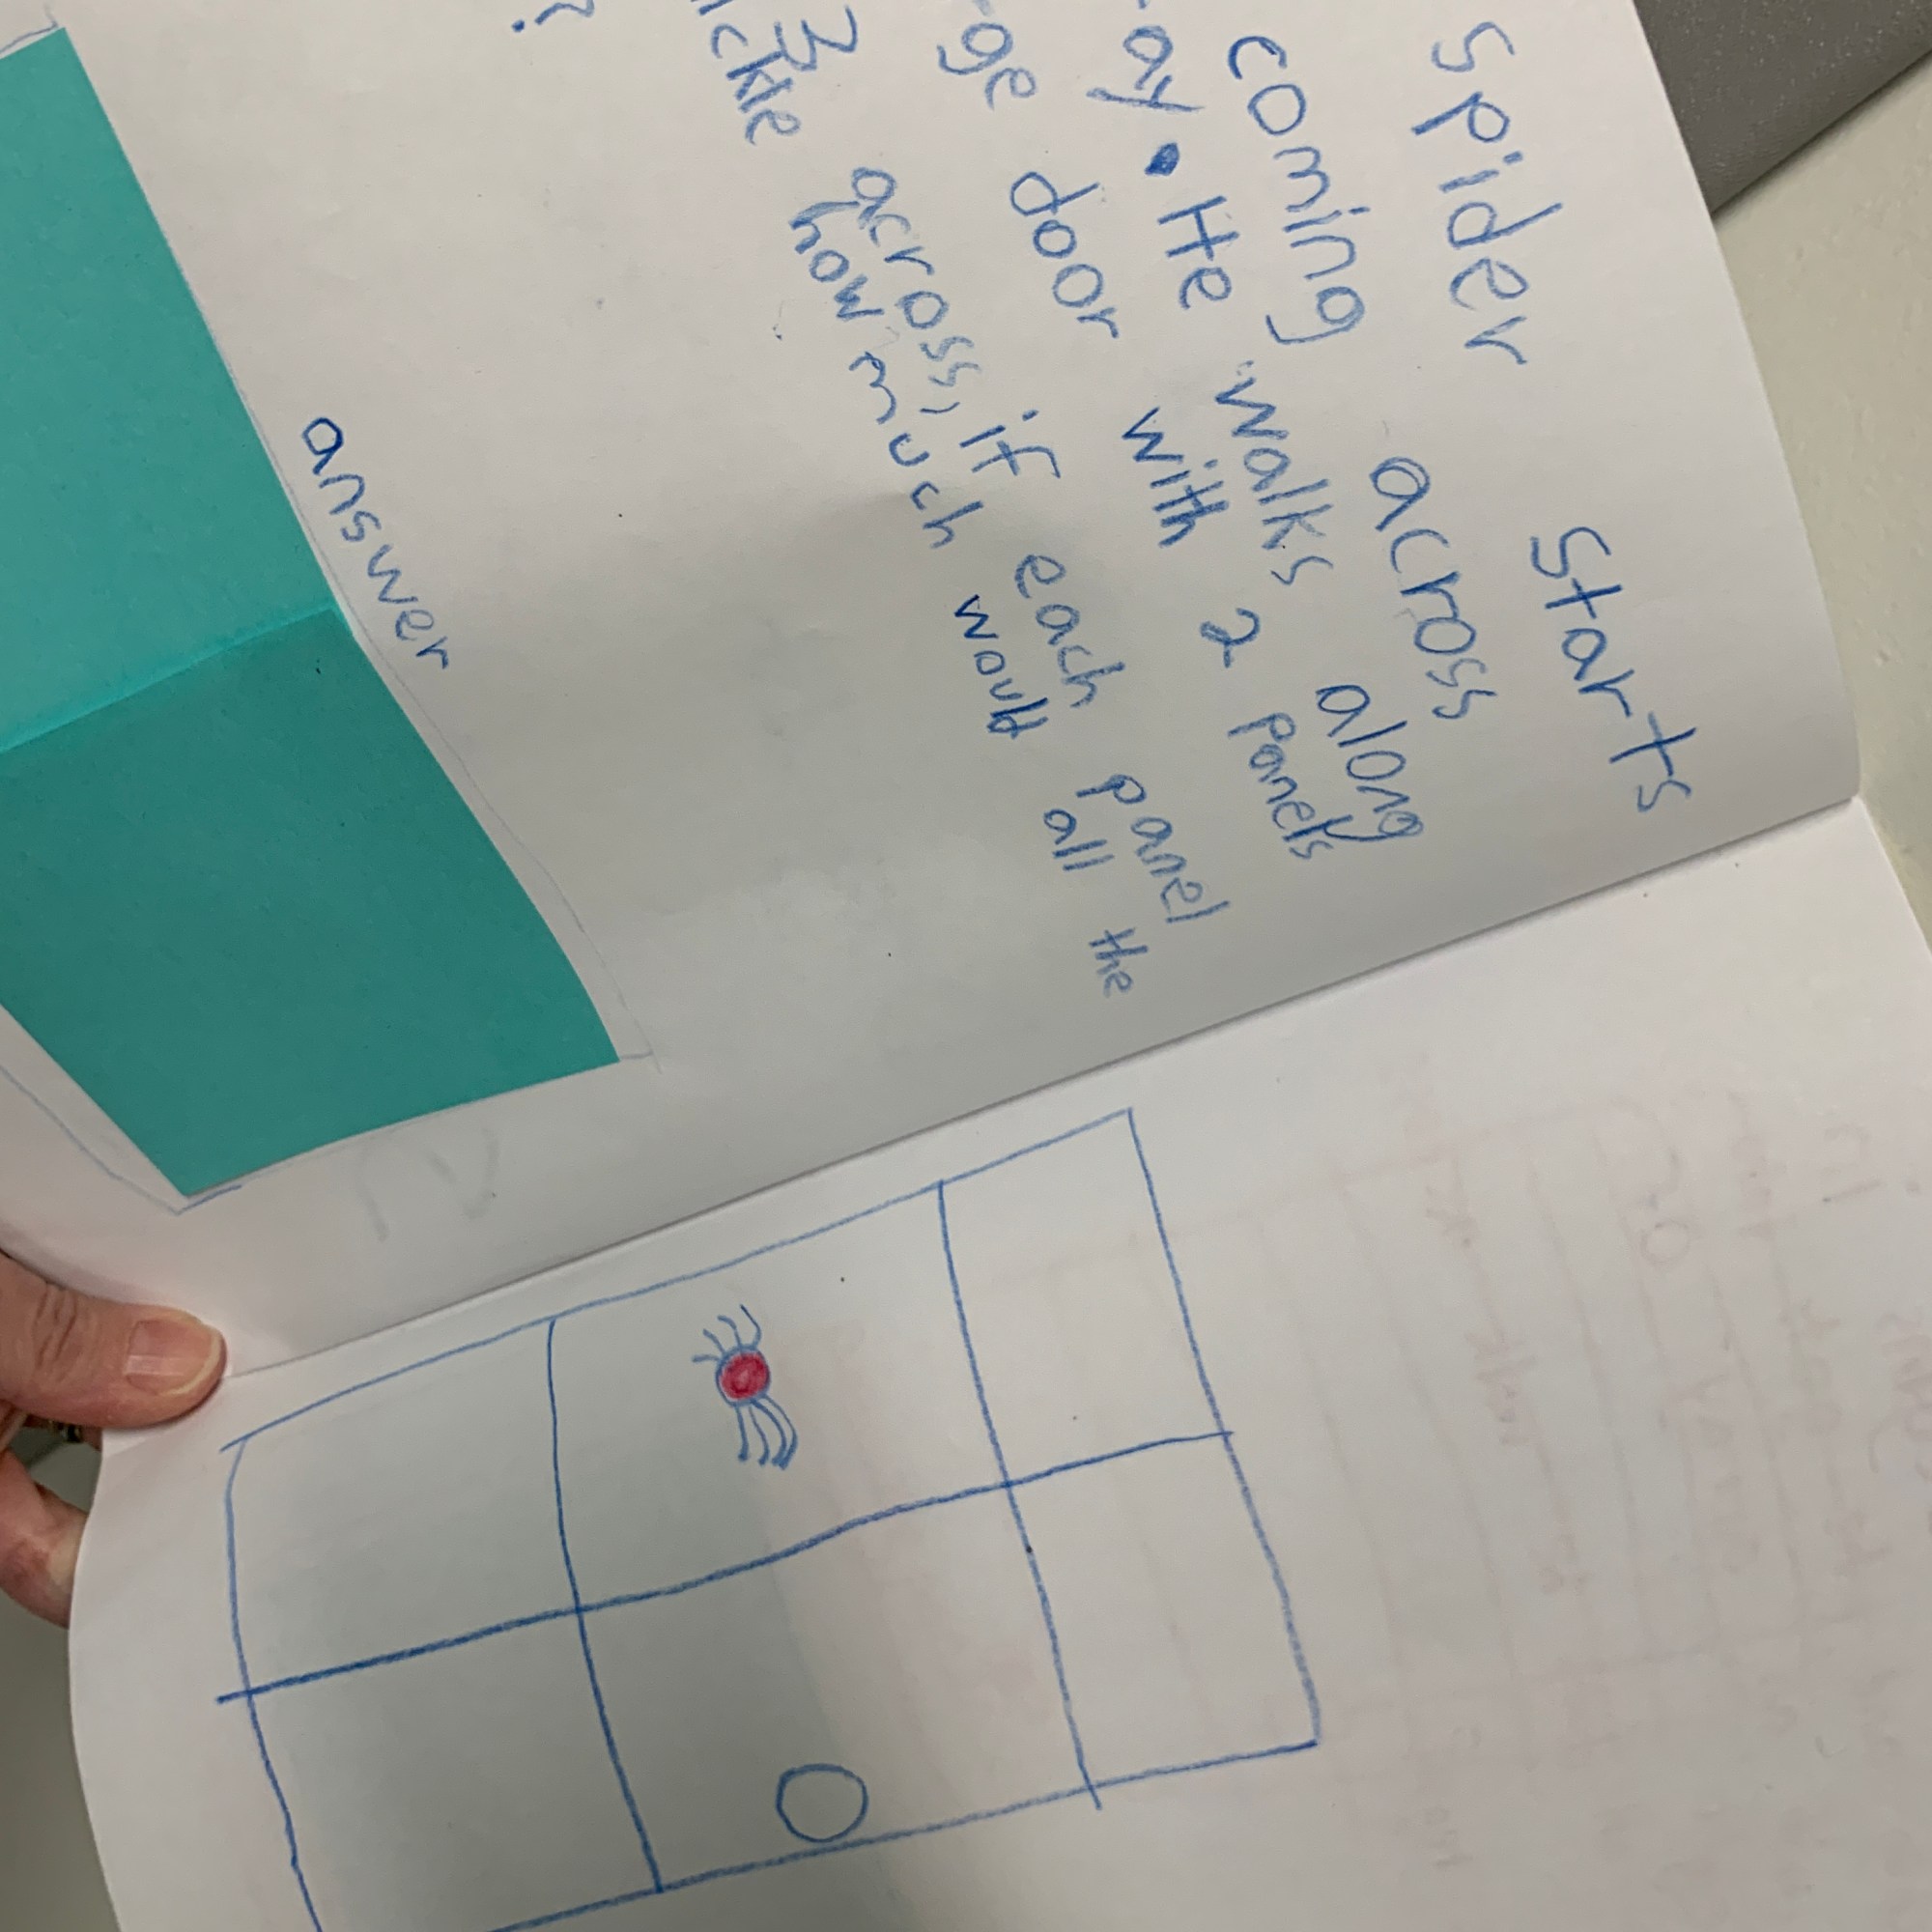 Spider starts
coming across
ay. He walks along
ge door with 2 panels
3 across, if each panel
ckle how much would all the
?
answer